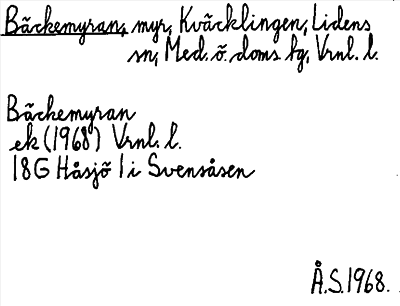 Bäckemyran, myr, Kväcklingen, Lidens
sn, Med. ö. doms tg, Vrnl. l.
Bäckemyran
ek (1968) Vrnl. l.
18G Håsjö 1 i Svensåsen
Å.S. 1968.